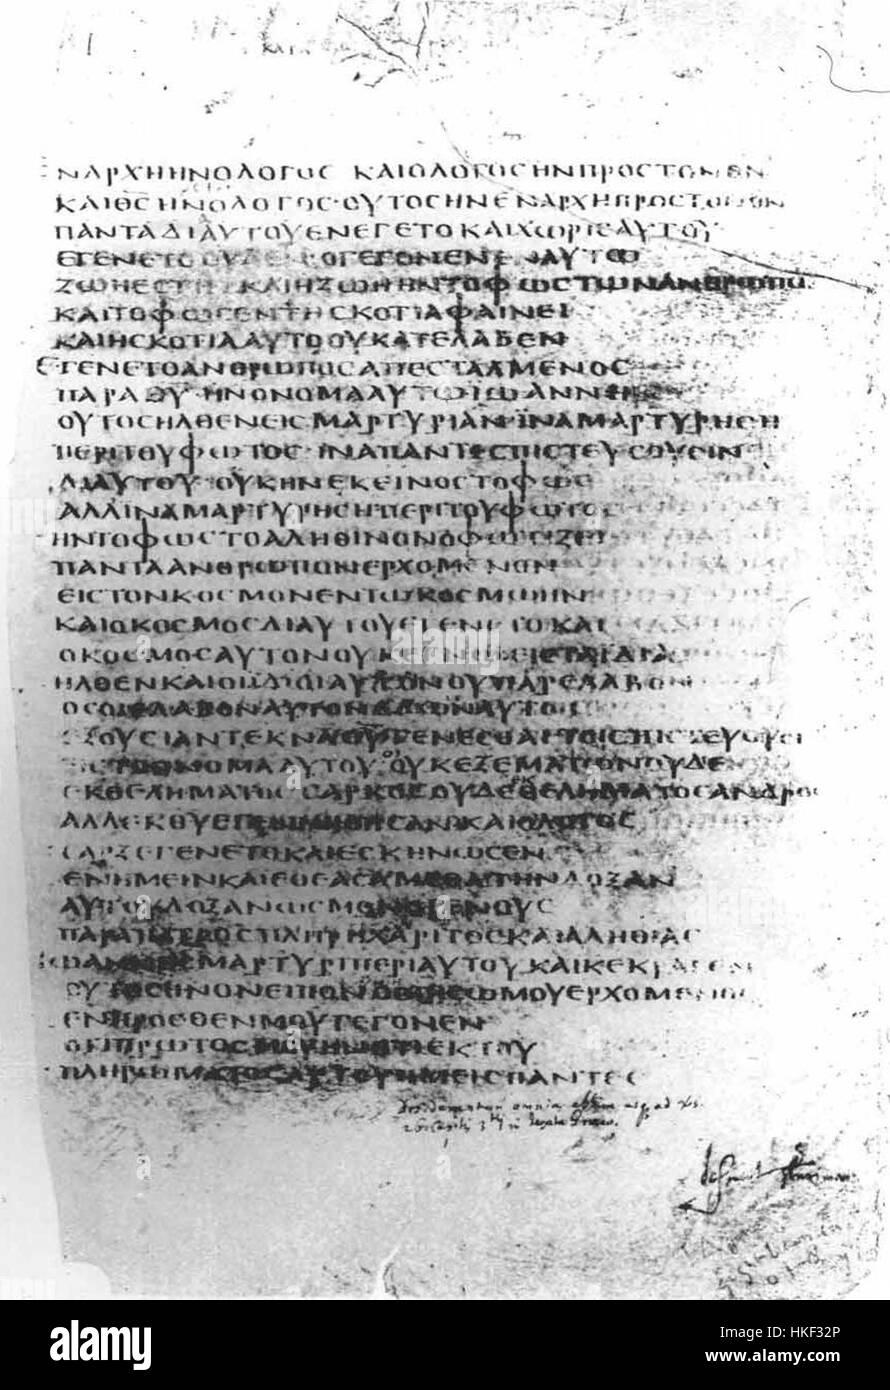 ΝΑΡΧΗΗΝΟΛΟΓΟϹ ΚΑΙΟΛΟΓΟϹΗΝΠΡΟϹΤΟΝΘΝ
ΚΑΙΘϹΗΝΟΛΟΓΟϹ·ΟΥΤΟϹΗΝΕΝΑΡΧΗΠΡΟϹΤΟΝΘΝ
ΠΑΝΤΑΔΙΑΥΤΟΥΕΝΕΓΕΤΟΚΑΙΧΩΡΙϹΑΥΤΟΥ
ΕΓΕΝΕΤΟΟΥΔΕΝΟΓΕΓΟΝΕΝΕΝΑΥΤΩ
ΖΩΗΕϹΤΙΝ ΚΑΙΗΖΩΗΗΝΤΟΦΩϹΤΩΝΑΝΘΡΩΠΩ
ΚΑΙΤΟΦΩϹΕΝΤΗϹΚΟΤΙΑΦΑΙΝΕΙ
ΚΑΙΗϹΚΟΤΙΑΑΥΤΟΟΥΚΑΤΕΛΑΒΕΝ
ΕΓΕΝΕΤΟΑΝΘΡΩΠΟϹΑΠΕϹΤΑΛΜΕΝΟϹ
ΠΑΡΑΘΥ·ΗΝΟΝΟΜΑΑΥΤΩΙΩΑΝΝΗϹ
ΟΥΤΟϹΗΛΘΕΝΕΙϹΜΑΡΤΥΡΙΑΝ·ΪΝΑΜΑΡΤΥΡΗϹΗ
ΠΕΡΙΤΟΥΦΩΤΟϹ·ΙΝΑΠΑΝΤΕϹΠΙϹΤΕΥϹΟΥϹΙΝ
ΔΙΑΥΤΟΥ·ΟΥΚΗΝΕΚΕΙΝΟϹΤΟΦΩϹ
ΑΛΛΪΝΑΜΑΡΤΥΡΗϹΗΠΕΡΙΤΟΥΦΩΤΟϹ
ΗΝΤΟΦΩϹΤΟΑΛΗΘΙΝΟΝΟΦΩΤΙΖΕΙ
ΠΑΝΤΑΑΝΘΡΩΠΟΝΕΡΧΟΜΕΝΟΝ
ΕΙϹΤΟΝΚΟϹΜΟΝΕΝΤΩΚΟϹΜΩΗΝ
ΚΑΙΟΚΟϹΜΟϹΔΙΑΥΤΟΥΕΓΕΝΕΤΟΚΑΙ
ΟΚΟϹΜΟϹΑΥΤΟΝΟΥΚΕΓΝΩ·ΕΙϹΤΑΙΔΙΑ
ΗΛΘΕΝΚΑΙΟΙΪΔΙΟΙΑΥΤΟΝΟΥΠΑΡΕΛΑΒΟΝ
ΟϹΟΙΕΛΑΒΟΝΑΥΤΟΝΕΔΩΚΕΝΑΥΤΟΙϹ
ΕΞΟΥϹΙΑΝΤΕΚΝΑΘΥΓΕΝΕϹΘΑΙΤΟΙϹΠΙϹΤΕΥΟΥϹΙ
ΕΙϹΤΟΟΝΟΜΑΑΥΤΟΥ·ΟΥΚΕΞΕΜΑΤΩΝΟΥΔΕ
ΕΚΘΕΛΗΜΑΤΟϹϹΑΡΚΟϹΟΥΔΕΘΕΛΗΜΑΤΟϹΑΝΔΡΟϹ
ΑΛΛΕΚΘΥΕΓΕΝΝΗΘΗϹΑΝΚΑΙΟΛΟΓΟϹ
ϹΑΡΞΕΓΕΝΕΤΟΚΑΙΕϹΚΗΝΩϹΕΝ
ΕΝΗΜΕΙΝΚΑΙΕΘΕΑϹΑΜΕΘΑΤΗΝΔΟΞΑΝ
ΑΥΤΟΥΔΟΞΑΝΩϹΜΟΝΟΓΕΝΟΥϹ
ΠΑΡΑΠΑΤΡΟϹΠΛΗΡΗΧΑΡΙΤΟϹΚΑΙΑΛΗΘΙΑϹ
ΙΩΑΝΝΗϹΜΑΡΤΥΡΙΠΕΡΙΑΥΤΟΥ·ΚΑΙΚΕΚΡΑΓΕΝ
ΟΥΤΟϹΗΝΟΝΕΙΠΟΝΟΠΙϹΩΜΟΥΕΡΧΟΜΕΝΟϹ
ΕΝΠΡΟϹΘΕΝΜΟΥΓΕΓΟΝΕΝ
ΟΤΙΠΡΩΤΟϹΜΟΥΗΝΟΤΙΕΚΤΟΥ
ΠΛΗΡΩΜΑΤΟϹΑΥΤΟΥΗΜΕΙϹΠΑΝΤΕϹ
alamy stock photo
HKF32P
www.alamy.com